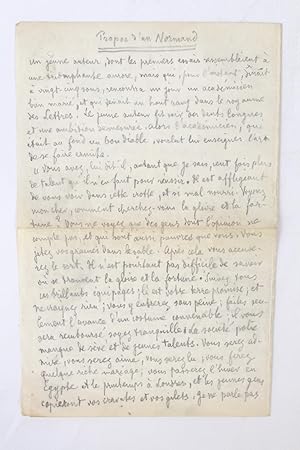 Propos d'un Normand
Un jeune auteur, dont les premiers essais ressemblèrent à
une triomphante aurore, mais qui, pour l'instant,
à vingt-cinq sous, rencontra un jour un académicien
bon marié, et qui tenait un haut rang dans le royaume
des Lettres. Le jeune auteur fit voir des dents longues
et une ambition démesurée; alors l'académicien, qui
était au fond un bon diable, voulut lui enseigner l'art
de se faire ermite.
" Vous avez, lui dit-il, autant que je sais, cent fois plus
de talent qu'il n'en faut pour réussir. Il est affligeant
de vous voir dans cette crotte, et si mal nourri. Voyons
mon cher, comment cherchez-vous la gloire et la for-
tune? Vous ne voyez que des gens dont l'opinion ne
compte pas, et qui sont aussi pauvres que vous. Vous
jetez vos graines dans le sable. Après cela vous accu-
serez le vent. Il n'est pourtant pas difficile de savoir
où se trouvent la gloire et la fortune. Suivez tous
ces brillants équipages; ils ont votre terre promise; et
ne croyez rien; vous y entrerez sans peine; faites seu-
lement l'avance d'un costume convenable; il vous
sera remboursé, soyez tranquille; la société polie
manque de sève et de jeunes talents. Vous serez ad-
miré, vous serez aimé, vous serez lu; vous ferez
quelque riche mariage; vous passerez l'hiver en
Egypte et le printemps à Londres, et les jeunes gens
copieront vos cravates et vos gilets. Je ne parle pas